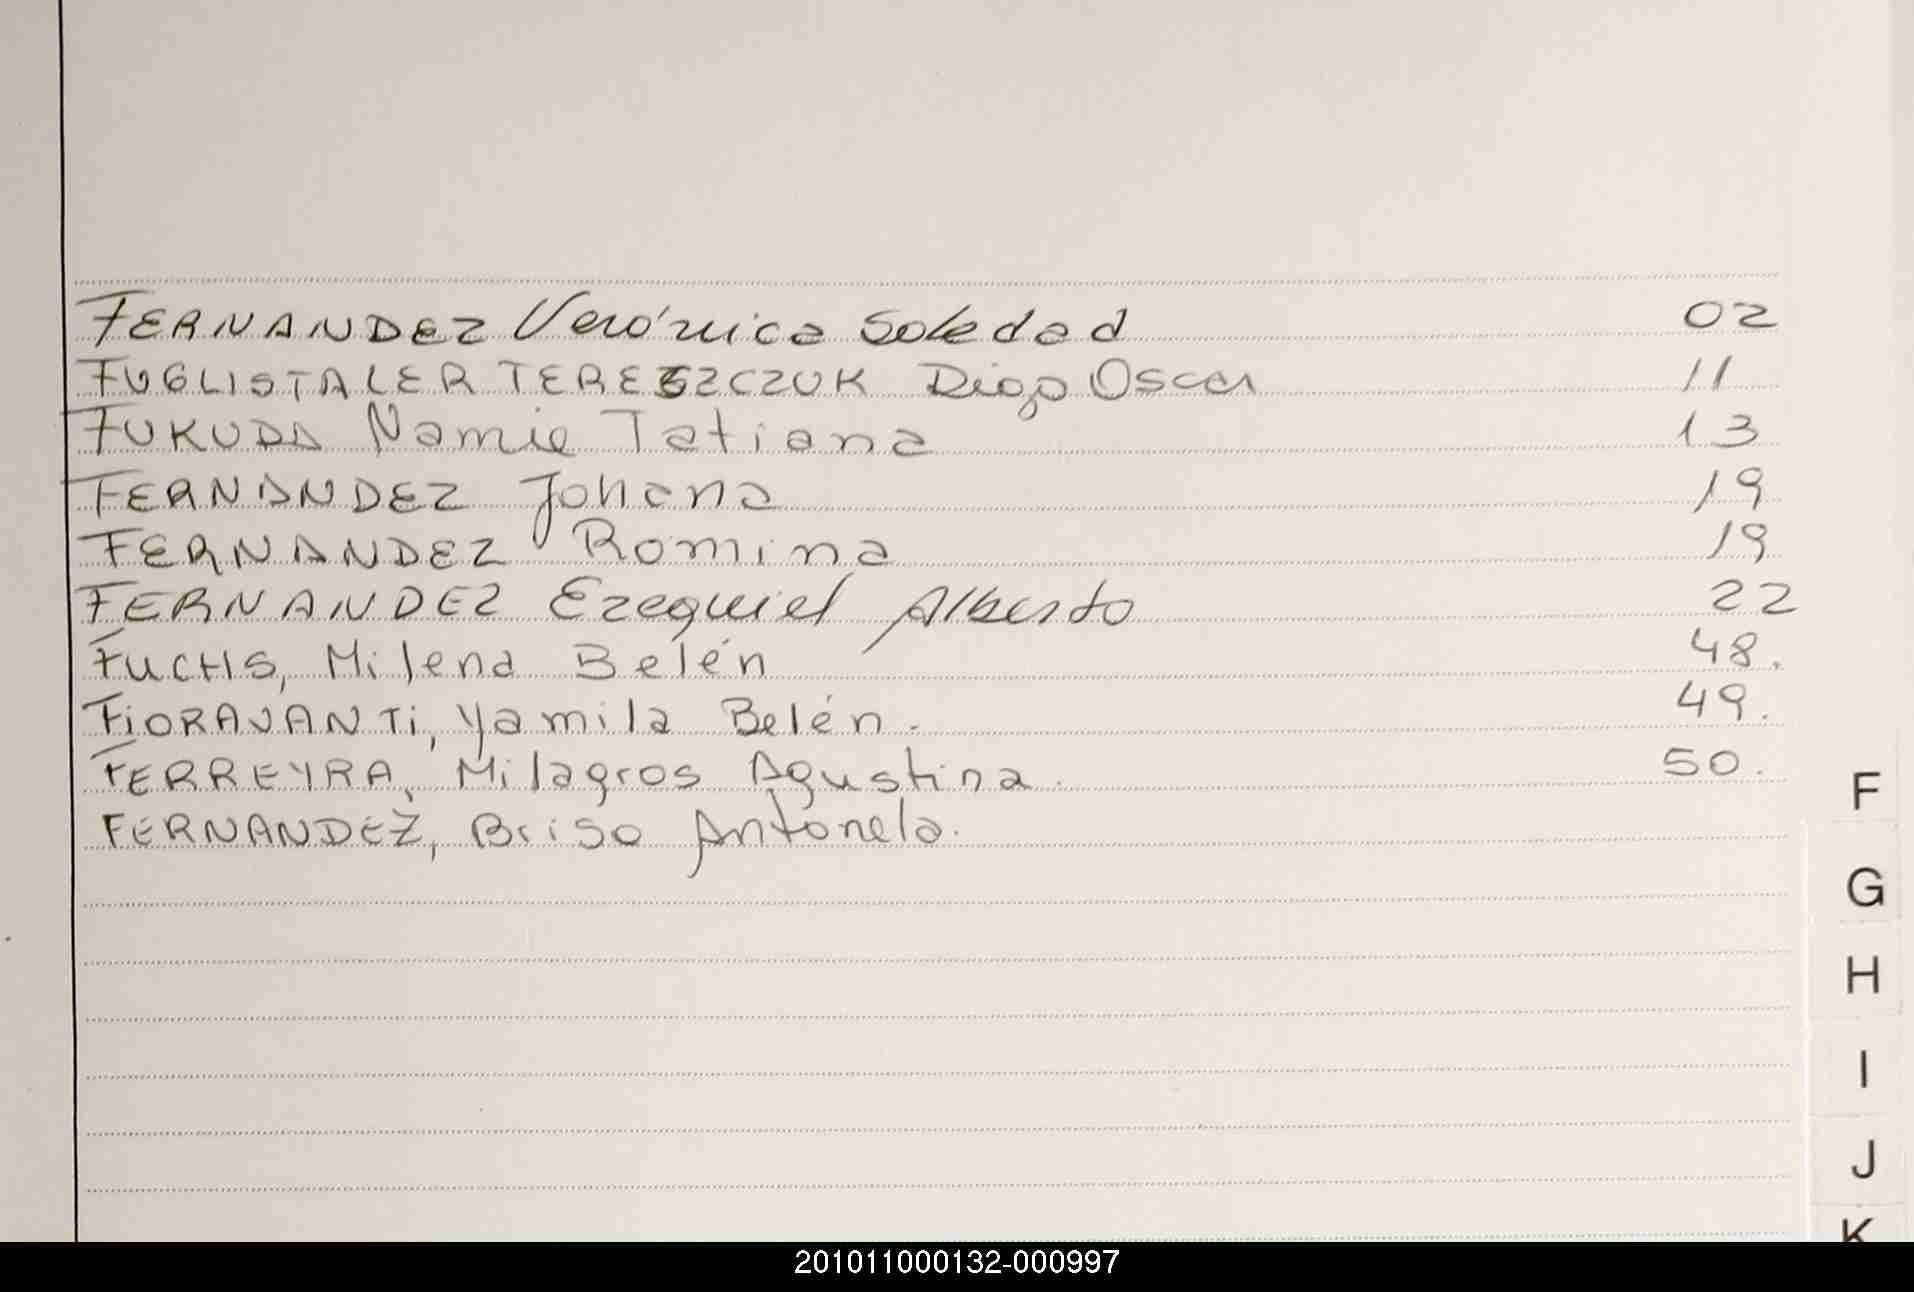 FERNANDEZ Verónica Soledad 02
FUGLISTALER TERESZCZUK Diego Oscar 11
FUKUDA Namie Tatiana 13
FERNANDEZ Johana 19
FERNANDEZ Romina 19
FERNANDEZ Ezequiel Alberto 22
FUCHS, Milena Belén 48.
FIORAVANTI, Yamila Belén. 49.
FERREYRA, Milagros Agustina. 50.
FERNANDEZ, Brisa Antonela.
F
G
H
I
J
K
201011000132-000997